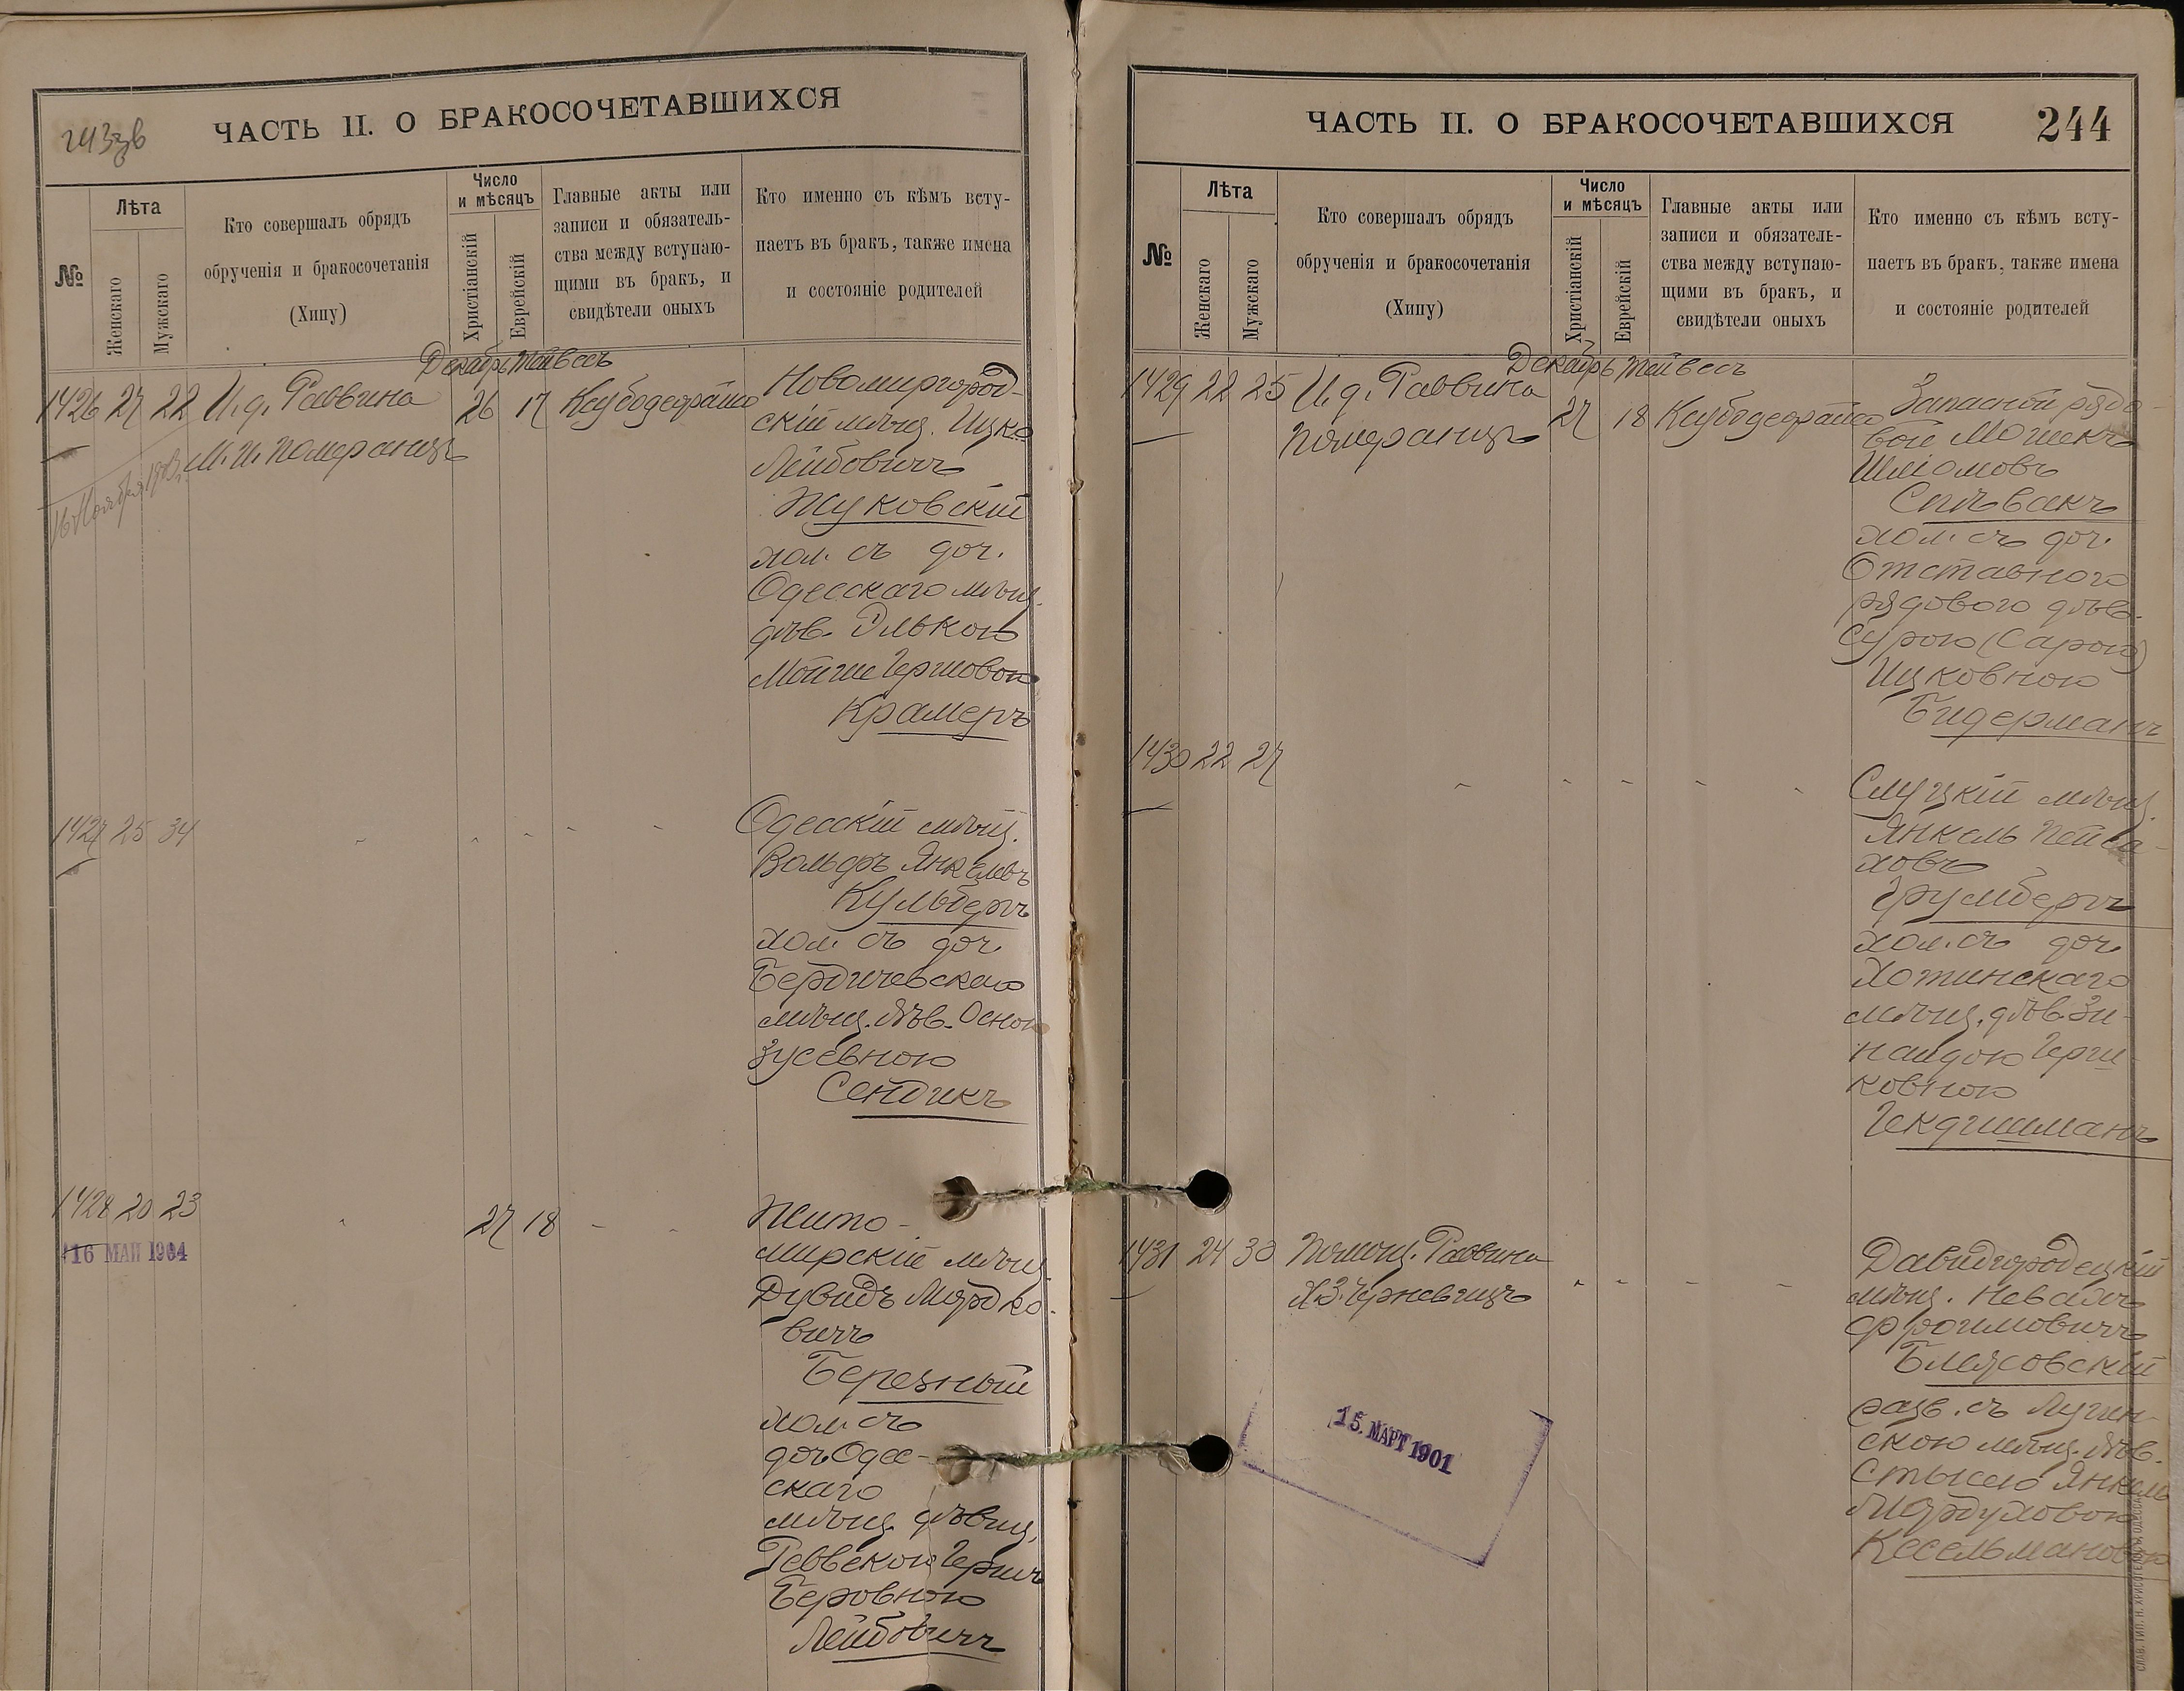 243 зв
ЧАСТЬ II. О БРАКОСОЧЕТАВШИХСЯ
№
Лѣта
Женскаго
Мужскаго
Кто совершалъ обрядъ
обрученія и бракосочетанія
(Хипу)
Число
и мѣсяцъ
Христіанскій
Еврейскій
Главные акты или
записи и обязатель-
ства между вступаю-
щими въ бракъ, и
свидѣтели оныхъ
Кто именно съ кѣмъ всту-
паетъ въ бракъ, также имена
и состояніе родителей
Декабрь Тейвесъ
1426 27 22 И. д. Раввина
М. И. Померанцъ
26 17
Новомиргород-
скій мѣщ. Ицко
Лейбовичъ
Жуковскій
хол. съ доч.
Одесскаго мѣщ.
дѣв. Элькою
Мойше Гершовою
Крамеръ
1427 25 34
Одесскій мѣщ.
Вольфъ Янкелевъ
Кульбергъ
хол. съ доч.
Бердичевскаго
мѣщ. дѣв. Осною
Зусевною
Сендикъ
1428 20 23
16 МАІ 1904
27 18
Жито-
мирскій мѣщ.
Дувидъ Мордко-
вичъ
Березный
хол. съ
доч. Одес-
скаго
мѣщ. дѣвиц.
Реввекою Гершъ
Беровною
Лейбовичъ
ЧАСТЬ II. О БРАКОСОЧЕТАВШИХСЯ
244
№
Лѣта
Женскаго
Мужскаго
Кто совершалъ обрядъ
обрученія и бракосочетанія
(Хипу)
Число
и мѣсяцъ
Христіанскій
Еврейскій
Главные акты или
записи и обязатель-
ства между вступаю-
щими въ бракъ, и
свидѣтели оныхъ
Кто именно съ кѣмъ всту-
паетъ въ бракъ, также имена
и состояніе родителей
Декабрь Тейвесъ
1429 22 25 И. д. Раввина
Померанцъ
27 18
Запасной рядо-
вой Мошекъ
Шліомовъ
Спѣвакъ
хол. съ доч.
Отставного
рядового дѣв.
Сурою (Сарою)
Ицковною
Бидерманъ
1430 22 27
Слуцкій мѣщ.
Янкель Пейса-
ховъ
Грумбергъ
хол. съ доч.
Хотинскаго
мѣщ. дѣв. Зи-
наидою Герш-
ковною
Гекдишманъ
1431 24 33 Помощ. Раввина
Давидгородецкій
мѣщ. Невахъ
Фроимовичъ
Блясовскій
разв. съ
скою мѣщ. дѣв.
Стысею Янкель
Мордуховою
Кесельмановою
15. МАРТ 1901